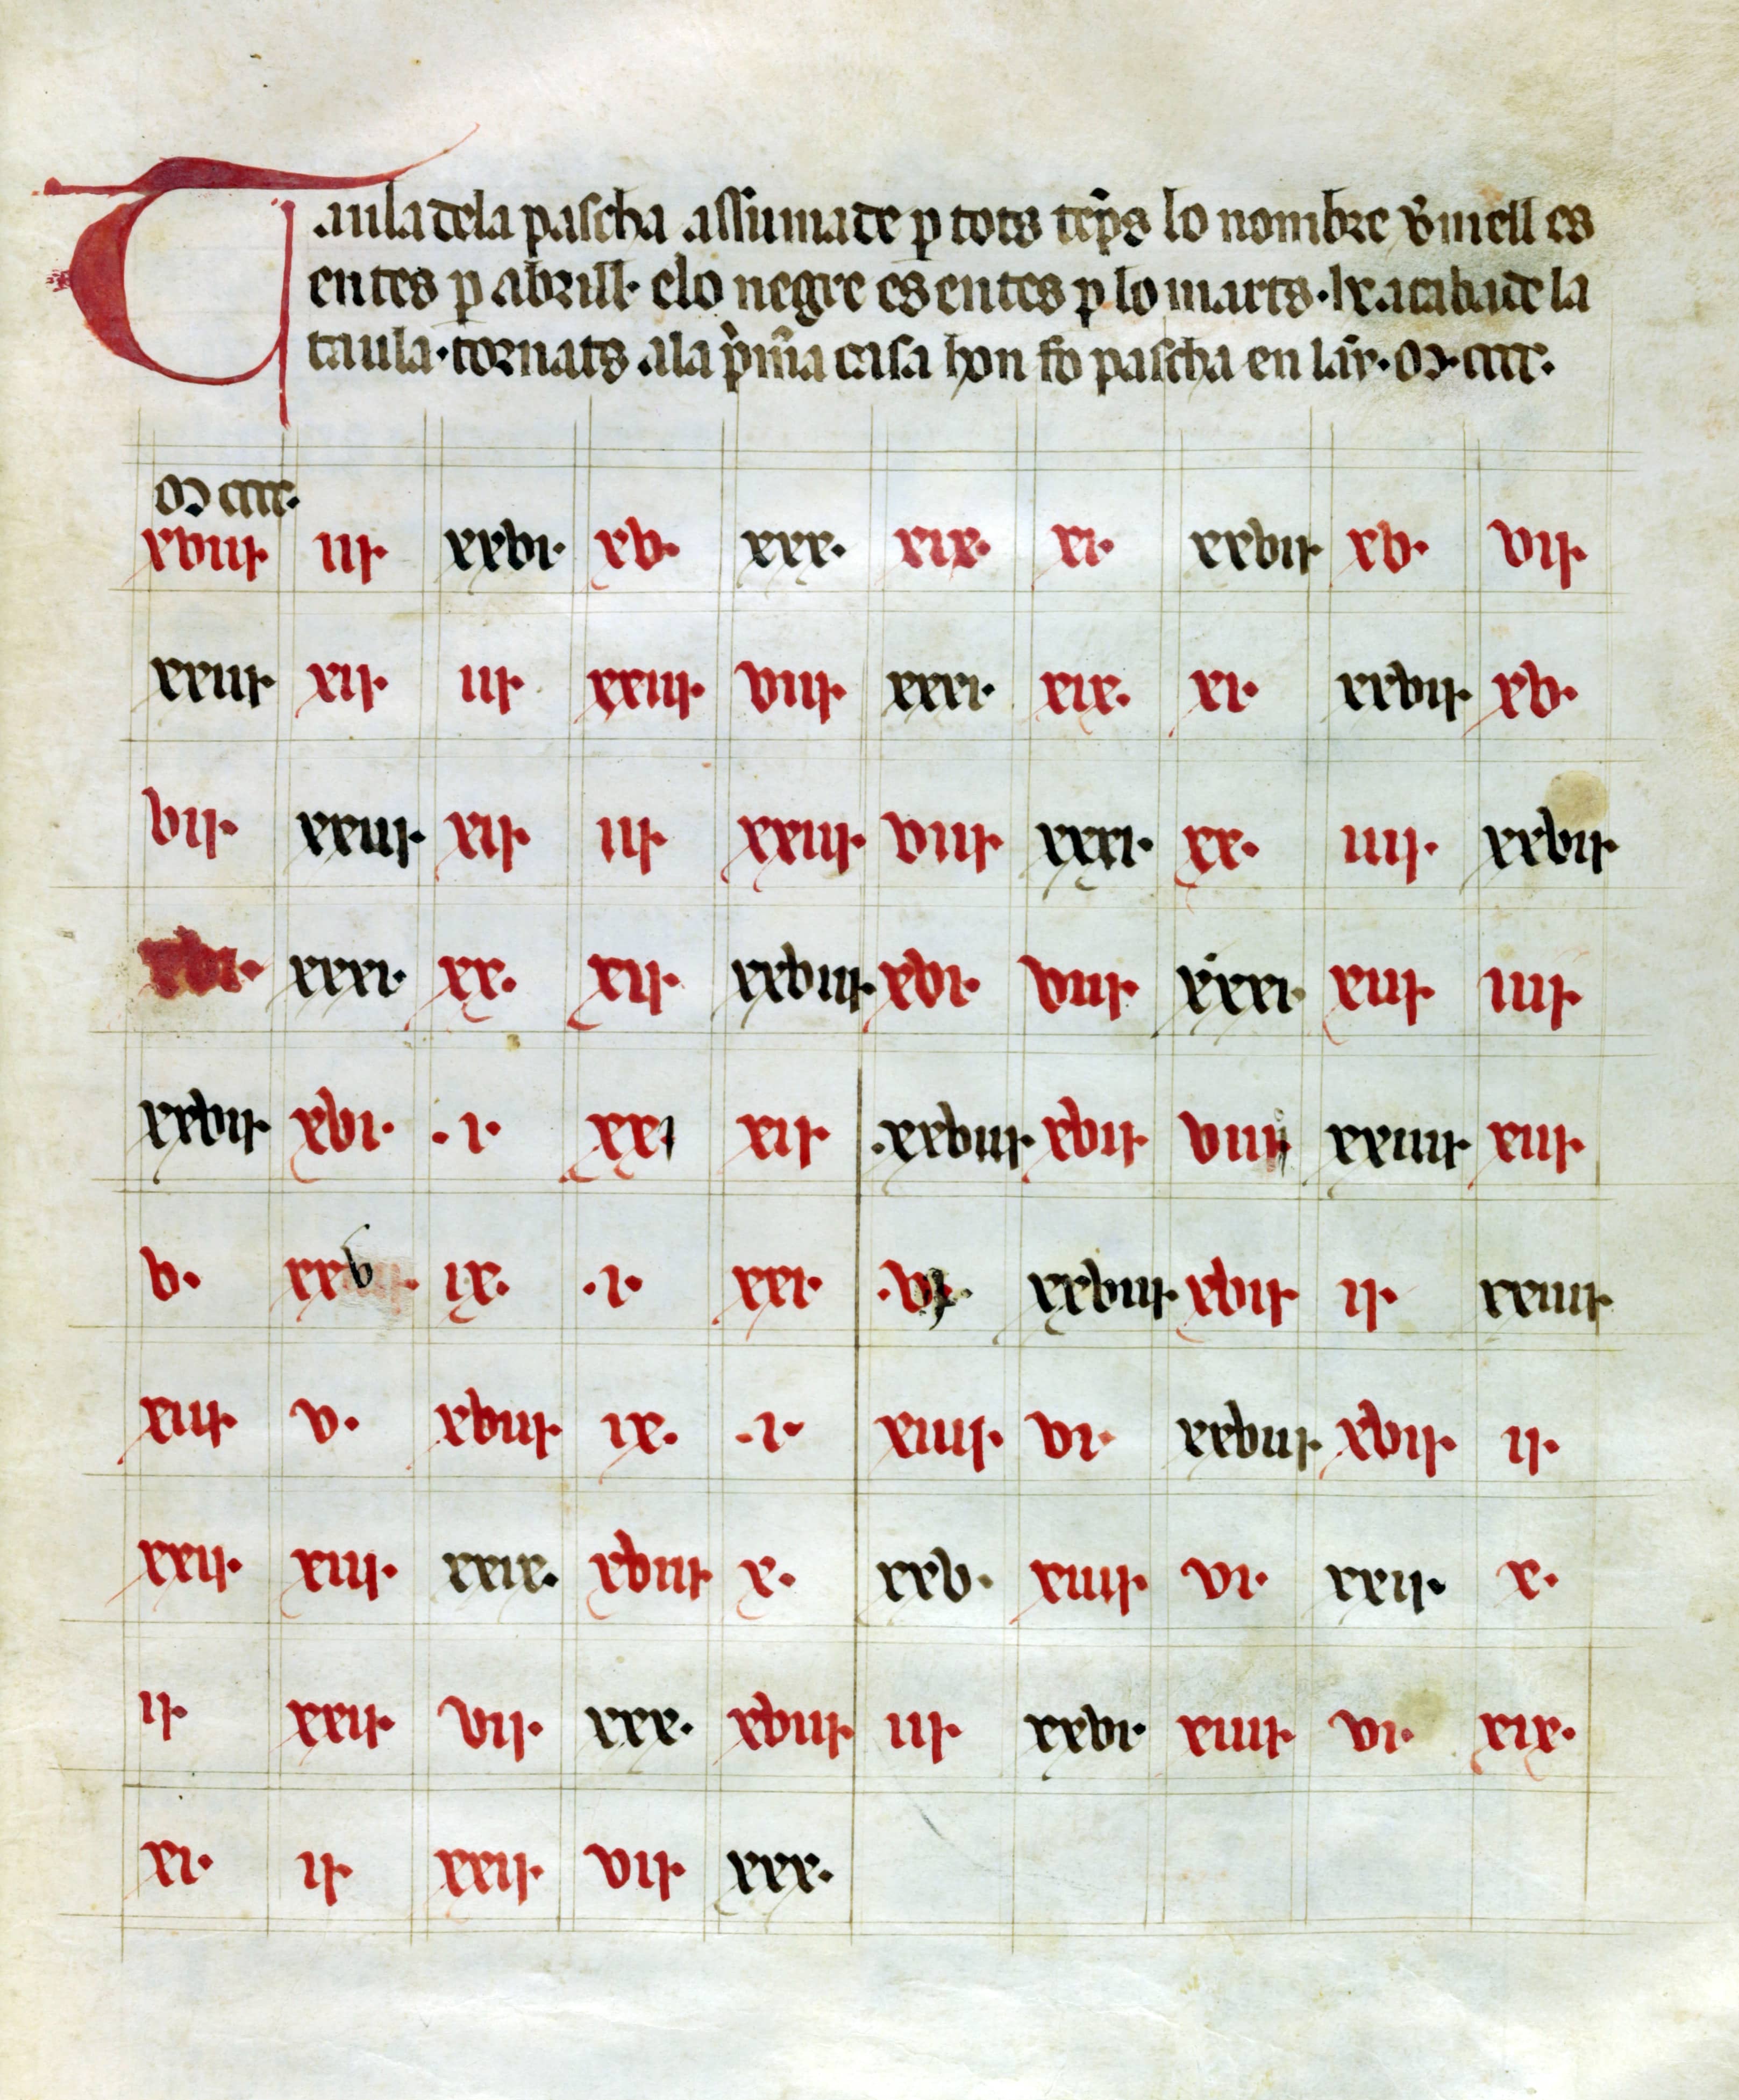 Taula dela pascha assumade p tots tẽps lo nombre v̾mell es
entes p abrill· elo negre es entes p lo marts· Ix acabade la
taula· tornats ala p̾m̃a casa hon fo pascha en lãy· M· CCCC·
M CCCC·
xviii· iii· xxvi· xv· xxx· xix· xi· xxvii· xv· vii·
xxiii· xii· iii· xxiii· viii· xxxi· xix· xi· xxvii· xv·
vii· xxiii· xii· iii· xxiii· viii· xxxi· xx· iiii· xxvii·
xvi· xxxi· xx· xii· xxviii· xvi· viii· xxxi· xiii· iiii·
xxvii· xvi· ·i· xxi xii· ·xxviii· xvii· viiii xxiiii· xiii·
v· xxv ix· ·i· xxi· ·v· xxviii· xvii· ii· xxiiii·
xiii· v· xviii· ix· ·i· xiiii· vi· xxviii· xvii· ii·
xxii· xiii· xxix· xviii· x· xxv· xiiii· vi· xxii· x·
ii· xxii· vii· xxx· xviii· iii· xxvi· xiiii· vi· xix·
xi· ii· xxii· vii· xxx·